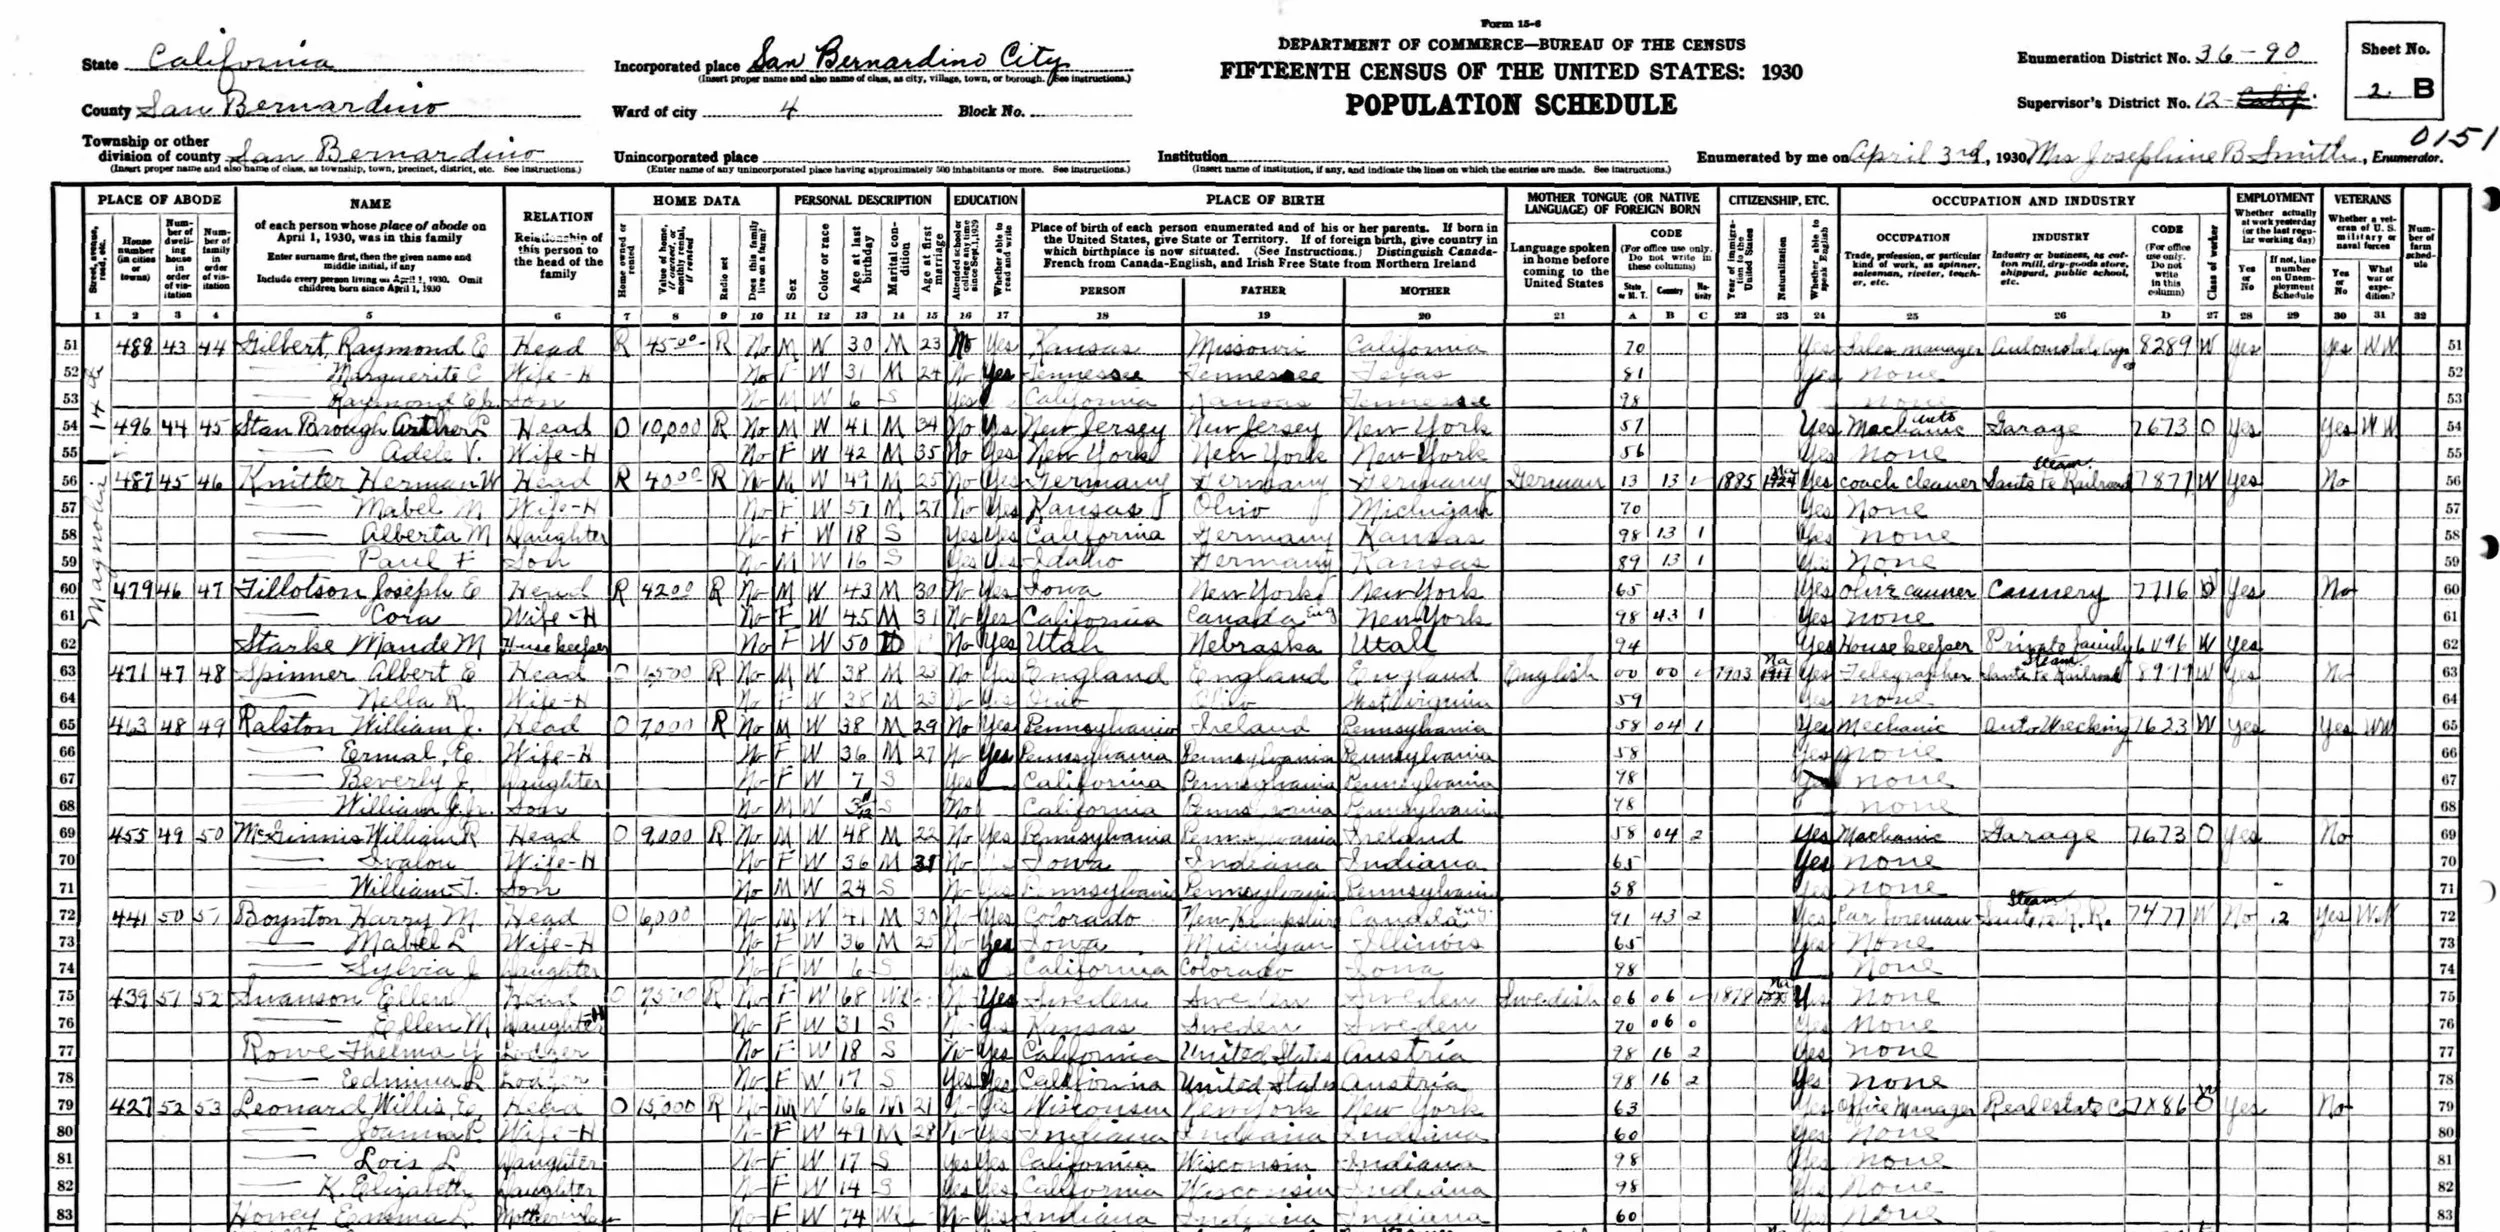 Form 15-6
State California
Incorporated place San Bernardino City
(Insert proper name and also name of class, as city, village, town, or borough. (See instructions.)
DEPARTMENT OF COMMERCE—BUREAU OF THE CENSUS
FIFTEENTH CENSUS OF THE UNITED STATES: 1930
POPULATION SCHEDULE
Enumeration District No. 36-90
Sheet No.
2 B
County San Bernardino
Ward of city 4 Block No.
Supervisor's District No. 12
0151
Township or other
division of county San Bernardino
(Insert proper name and also name of class, as township, town, precinct, district, etc. See instructions.)
Unincorporated place
(Enter name of any unincorporated place having approximately 500 inhabitants or more. See instructions.)
Institution
(Insert name of institution, if any, and indicate the lines on which the entries are made. See instructions.)
Enumerated by me on April 3rd, 1930, Mrs Josephine B Smith, Enumerator.
PLACE OF ABODE
NAME
of each person whose place of abode on April 1, 1930, was in this family
Enter surname first, then the given name and middle initial, if any
Include every person living on April 1, 1930. Omit children born since April 1, 1930
RELATION
Relationship of this person to the head of the family
HOME DATA
PERSONAL DESCRIPTION
EDUCATION
PLACE OF BIRTH
Place of birth of each person enumerated and of his or her parents. If born in the United States, give State or Territory. If of foreign birth, give country in which birthplace is now situated. (See Instructions.) Distinguish Canada-French from Canada-English, and Irish Free State from Northern Ireland
PERSON FATHER MOTHER
MOTHER TONGUE (OR NATIVE LANGUAGE) OF FOREIGN BORN
Language spoken in home before coming to the United States
CODE
(For office use only. Do not write in these columns)
CITIZENSHIP, ETC.
OCCUPATION AND INDUSTRY
OCCUPATION
Trade, profession, or particular kind of work, as spinner, salesman, riveter, teacher, etc.
INDUSTRY
Industry or business, as cotton mill, dry-goods store, shipyard, public school, etc.
CODE
(For office use only. Do not write in this column)
Class of worker
EMPLOYMENT
Whether actually at work yesterday (or the last regular working day)
VETERANS
Whether a veteran of U. S. military or naval forces
Number of farm schedule
1 2 3 4 5 6 7 8 9 10 11 12 13 14 15 16 17 18 19 20 21 A B C 22 23 24 25 26 D 27 28 29 30 31 32
51 489 43 44 Gilbert, Raymond E Head R 45.00 R No M W 30 M 23 No Yes Kansas Missouri California 70 Yes Sales manager 8289 W Yes Yes WW 51
52 Marguerite C Wife-H No F W 31 M 24 No Yes Tennessee Tennessee Texas 81 Yes None 52
53 Raymond E Jr. Son No M W 6 S Yes California Kansas Tennessee 98 None 53
54 496 44 45 Stan Brough Arther L Head O 10,000 R No M W 41 M 34 No Yes New Jersey New Jersey New York 57 Yes Auto Mechanic Garage 7673 O Yes Yes WW 54
55 Adele V. Wife-H No F W 42 M 35 No Yes New York New York New York 56 Yes None 55
Magnolia
56 487 45 46 Knitter Herman W Head R 40.00 R No M W 49 M 25 No Yes Germany Germany Germany German 13 13 1885 Na 1924 Yes coach cleaner Steam Santa Fe Railroad 7877 W Yes No 56
57 Mabel M Wife-H No F W 51 M 27 No Yes Kansas Ohio Michigan 70 Yes None 57
58 Alberta M Daughter No F W 18 S Yes Yes California Germany Kansas 98 13 1 Yes None 58
59 Paul F Son No M W 16 S Yes Yes Idaho Germany Kansas 89 13 1 Yes None 59
60 479 46 47 Tillotson Joseph E Head R 42.00 R No M W 43 M 30 No Yes Iowa New York New York 65 Yes Olive canner Cannery 7716 O Yes No 60
61 Cora Wife-H No F W 45 M 31 No Yes California Canada Eng New York 98 43 1 Yes None 61
62 Starke Maude M Housekeeper No F W 50 D No Yes Utah Nebraska Utah 94 Yes Housekeeper Private family W Yes 62
63 471 47 48 Spinner Albert E Head O R No M W 38 M 23 No Yes England England England English 00 00 1903 Na 1917 Yes Telegrapher Steam Santa Fe Railroad W Yes No 63
64 Nella R. Wife-H No F W 38 M 23 No Yes Ohio Ohio West Virginia 59 Yes None 64
65 463 48 49 Ralston William J. Head O 7,000 R No M W 38 M 29 No Yes Pennsylvania Ireland Pennsylvania 58 04 1 Yes Mechanic Auto Wrecking 7623 W Yes Yes WW 65
66 Ermal E. Wife-H No F W 36 M 27 No Yes Pennsylvania Pennsylvania Pennsylvania 58 Yes None 66
67 Beverly J. Daughter No F W 7 S Yes California Pennsylvania Pennsylvania 98 None 67
68 William J. Jr. Son No M W S No California Pennsylvania Pennsylvania 98 None 68
69 455 49 50 McGinnis William R Head O 9,000 R No M W 48 M 22 No Yes Pennsylvania Pennsylvania Ireland 58 04 2 Yes Mechanic Garage 7673 O Yes No 69
70 Avalon Wife-H No F W 36 M 31 No Iowa Indiana Indiana 65 Yes None 70
71 William T. Son No M W 24 S No Yes Pennsylvania Pennsylvania Pennsylvania 58 Yes None 71
72 441 50 51 Boynton Harry M Head O 6,000 No M W 41 M 30 No Yes Colorado New Hampshire Canada Eng. 91 43 2 Yes Car foreman Steam Santa Fe R.R. 7477 W No 2 Yes WW 72
73 Mabel L Wife-H No F W 36 M 25 No Yes Iowa Michigan Illinois 65 Yes None 73
74 Sylvia J Daughter No F W 6 S Yes California Colorado Iowa 98 None 74
75 439 51 52 Swanson Ellen Head O R No F W 68 Wd No Yes Sweden Sweden Sweden Swedish 06 06 1878 Na Yes None 75
76 Ellen M Daughter No F W 31 S No Yes Kansas Sweden Sweden 70 06 0 Yes None 76
77 Rowe Thelma Y Lodger No F W 18 S No Yes California United States Austria 98 16 2 Yes None 77
78 Edmina L Lodger No F W 17 S Yes Yes California United States Austria 98 16 2 Yes None 78
79 427 52 53 Leonard Willis E. Head O 15,000 R No M W 66 M 21 No Yes Wisconsin New York New York 63 Yes Office Manager Real estate Co Yes No 79
80 Joanna P. Wife-H No F W 49 M 28 No Yes Indiana Indiana Indiana 60 Yes None 80
81 Lois L Daughter No F W 17 S Yes Yes California Wisconsin Indiana 98 Yes None 81
82 K. Elizabeth Daughter No F W 14 S Yes Yes California Wisconsin Indiana 98 Yes None 82
83 Emma L. Mother in law No F W 74 Wd No Yes Indiana Indiana Indiana 60 Yes None 83